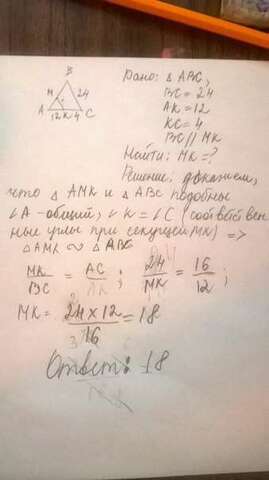 B
M 24
A 12 K 4 C
Дано: △ ABC,
BC = 24
AK = 12
KC = 4
BC || MK
Найти: MK = ?
Решение: докажем,
что △ AMK и △ ABC подобны
∠A - общий, ∠K = ∠C (соответствен
ные углы при секущей MK) =>
△ AMK ∾ △ ABC
MK/BC = AC/AK ; 24/MK = 16/12 ;
MK = 24 × 12/16 = 18
Ответ: 18